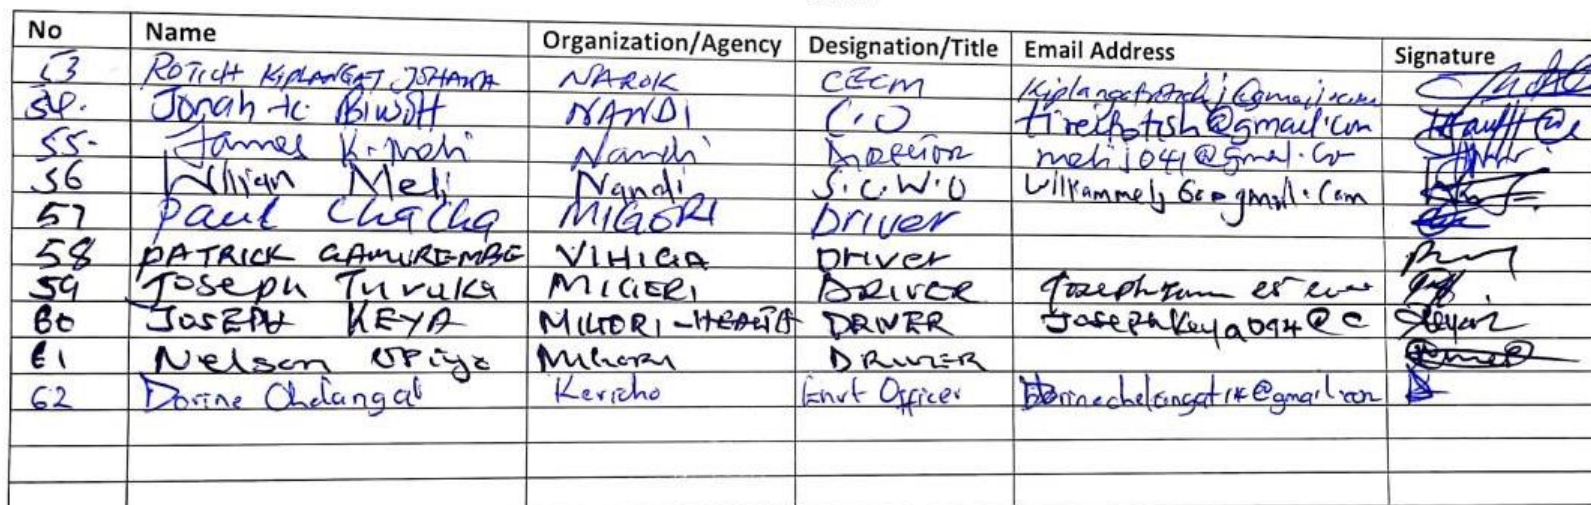 No Name Organization/Agency Designation/Title Email Address Signature
53 ROTICH KIPLANGAT JOSHAWA NAROK CECM
54. Jonah K. BIWOTT NANDI C.O tireitotish@gmail.com
55. James K. Meli Nandi Director meli j041@gmal.Co
56 William Meli Nandi S.C.W.O
57 Paul Chacha MIGORI Driver
58 PATRICK VIHIGA Driver
59 Joseph Turuka MIGERI DRIVER
60 JOSEPH KEYA MIGORI-HEALTH DRIVER JosephKeya094@c
61 Nelson OPiyo MIGORI DRIVER
62 Dorine Chelangat Kericho Envt Officer Dorinechelangat14@gmail.com